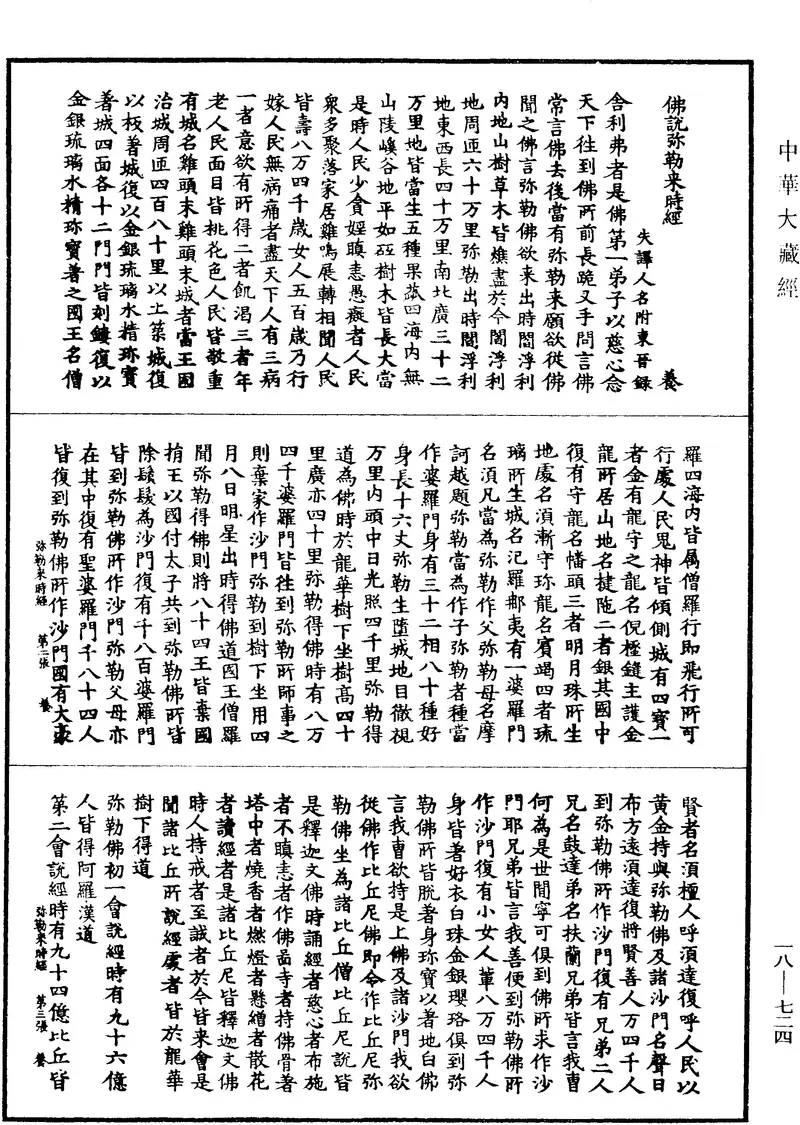 中華大藏經
佛說弥勒来時經
失譯人名附東晉録
養
舎利弗者是佛第一弟子以慈心念
天下往到佛所前長跪叉手問言佛
常言佛去後當有弥勒来願欲従佛
聞之佛言弥勒佛欲来出時閻浮利
内地山樹草木皆燋盡於今閻浮利
地周匝六十万里弥勒出時閻浮利
地東西長四十万里南北廣三十二
万里地皆當生五種果蓏四海内無
山陵嵠谷地平如砥樹木皆長大當
是時人民少貪婬瞋恚愚癡者人民
衆多聚落家居雞鳴展轉相聞人民
皆壽八万四千歲女人五百歲乃行
嫁人民無病痛者盡天下人有三病
一者意欲有所得二者飢渴三者年
老人民面目皆桃花色人民皆敬重
有城名雞頭末雞頭末城者當王國
治城周匝四百八十里以土築城復
以板著城復以金銀琉璃水精珎寶
著城四面各十二門門皆刻鏤復以
金銀琉璃水精珎寶著之國王名僧
羅四海内皆属僧羅行即飛行所可
行處人民鬼神皆傾側城有四寶一
者金有龍守之龍名倪樫鏠主護金
龍所居山地名揵陁二者銀其國中
復有守龍名幡頭三者明月珠所生
地處名湏漸守珎龍名賓竭四者琉
璃所生城名氾羅郍夷有一婆羅門
名湏凡當為弥勒作父弥勒母名摩
訶越題弥勒當為作子弥勒者種當
作婆羅門身有三十二相八十種好
身長十六丈弥勒生墮城地目徹視
万里内頭中日光照四千里弥勒得
道為佛時於龍華樹下坐樹高四十
里廣亦四十里弥勒得佛時有八万
四千婆羅門皆往到弥勒所師事之
則棄家作沙門弥勒到樹下坐用四
月八日明星出時得佛道國王僧羅
聞弥勒得佛則將八十四王皆棄國
捐王以國付太子共到弥勒佛所皆
除鬚髮為沙門復有千八百婆羅門
皆到弥勒佛所作沙門弥勒父母亦
在其中復有聖婆羅門千八十四人
皆復到弥勒佛所作沙門國有大豪
弥勒来時經　第二張　養
賢者名湏檀人呼湏達復呼人民以
黄金持與弥勒佛及諸沙門名聲日
布方遠湏達復將賢善人万四千人
到弥勒佛所作沙門復有兄弟二人
兄名鼓達弟名扶蘭兄弟皆言我曹
何為是世間寧可俱到佛所求作沙
門耶兄弟皆言我善便到弥勒佛所
作沙門復有小女人輩八万四千人
身皆著好衣白珠金銀瓔珞俱到弥
勒佛所皆脱著身珎寶以著地白佛
言我曹欲持是上佛及諸沙門我欲
従佛作比丘尼佛即令作比丘尼弥
勒佛坐為諸比丘僧比丘尼說皆
是釋迦文佛時誦經者慈心者布施
者不瞋恚者作佛畐寺者持佛骨著
塔中者燒香者燃燈者懸繒者散花
者讀經者是諸比丘尼皆釋迦文佛
時人持戒者至誠者於今皆来會是
聞諸比丘所說經處者皆於龍華
樹下得道
弥勒佛初一會說經時有九十六億
人皆得阿羅漢道
第二會說經時有九十四億比丘皆
弥勒来時經　第三張　養
一八—七二四